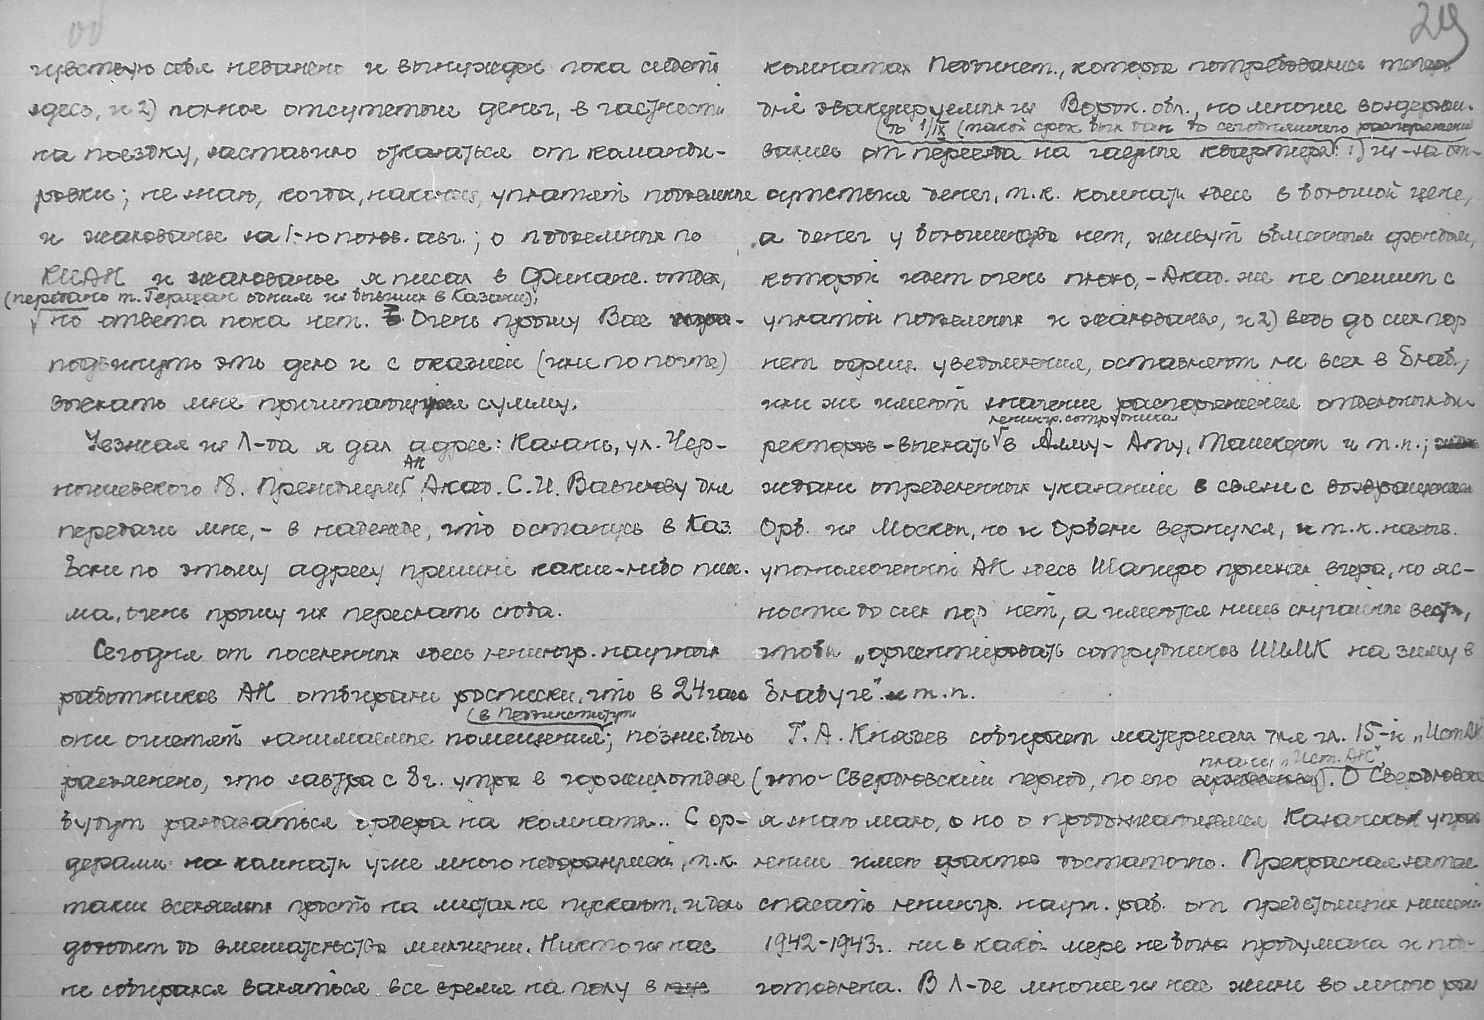 об
24
чувствую себя неважно и вынужден пока сидеть
здесь, и 2) полное отсутствие денег, в частности
на поездку, заставило отказаться от команди-
ровки; не знаю, когда, наконец, уплатят подъемные
и жалованье за 1-ю полов. авг.; о подъемных по
КИАН и жалованье я писал в Финанс. отдел,
(передано т. Герцман одним из бывших в Казани),
но ответа пока нет. Очень прошу Вас
подвинуть это дело и с оказией (или по почте)
выслать мне причитающуюся сумму.
Уезжая из Л-да я дал адрес: Казань, ул. Чер-
нышевского 18. Президиум АН Акад. С.И. Вавилову для
передачи мне, - в надежде, что останусь в Каз.
Если по этому адресу пришли какие-либо пись-
ма, очень прошу их переслать сюда.
Сегодня от поселенных здесь ленингр. научных
работников АН отбирали расписки, что в 24 часа
(в Пединституте
они очистят занимаемые помещения; позже было
разъяснено, что завтра с 8 г. утра в горжилотделе
будут раздаваться ордера на комнаты. С ор-
дерами на комнаты уже много недоразумений, т.к.
таких вселяемых просто на местах не пускают, и дело
доходит до вмешательства милиции. Никто из нас
не собирался валяться все время на полу в
комнатах Пединст., которые потребовались теперь
для эвакуируемых из Ворон. обл., но многие воздержи-
(до 1/IX (такой срок был дан до сегодняшнего распоряжения)
вались от переезда на частные квартиры: 1) из-за от-
сутствия денег, т.к. комнаты здесь в большой цене,
а денег у большинства нет, живут обменным фондом,
который идет очень плохо, - Акад. же не спешит с
уплатой подъемных и жалованья, и 2) ведь до сих пор
нет офиц. уведомления, оставляют ли всех в Елаб.,
или же имеют значение распоряжения отдельных ди-
ректоров - выехать ленингр. сотрудника в Алму-Ату, Ташкент и т.п.;
ждали определенных указаний в связи с возвращением
Орб. из Москвы, но и Орбели вернулся, и т.к. назыв.
уполномоченный АН здесь Шапиро приехал вчера, но яс-
ности до сих пор нет, а имеются лишь случайные вести,
чтобы „ориентировать сотрудников ИИМК на зиму в
Елабуге" и т.п.
Г.А. Князев собирает материал для гл. 15-й „Ист. АН"
(это - Свердловский период, по его плану „Ист. АН". О Свердловске
я знаю мало, но о продолжающемся Казанском
имею фактов достаточно. Прекрасная затея
спасать ленингр. научн. раб. от предстоящих лишений
1942-1943 г. ни в какой мере не была продумана и под-
готовлена. В Л-де многие из нас жили во много раз